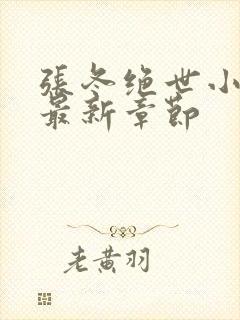 張冬绝世小
最新章節
老黄羽